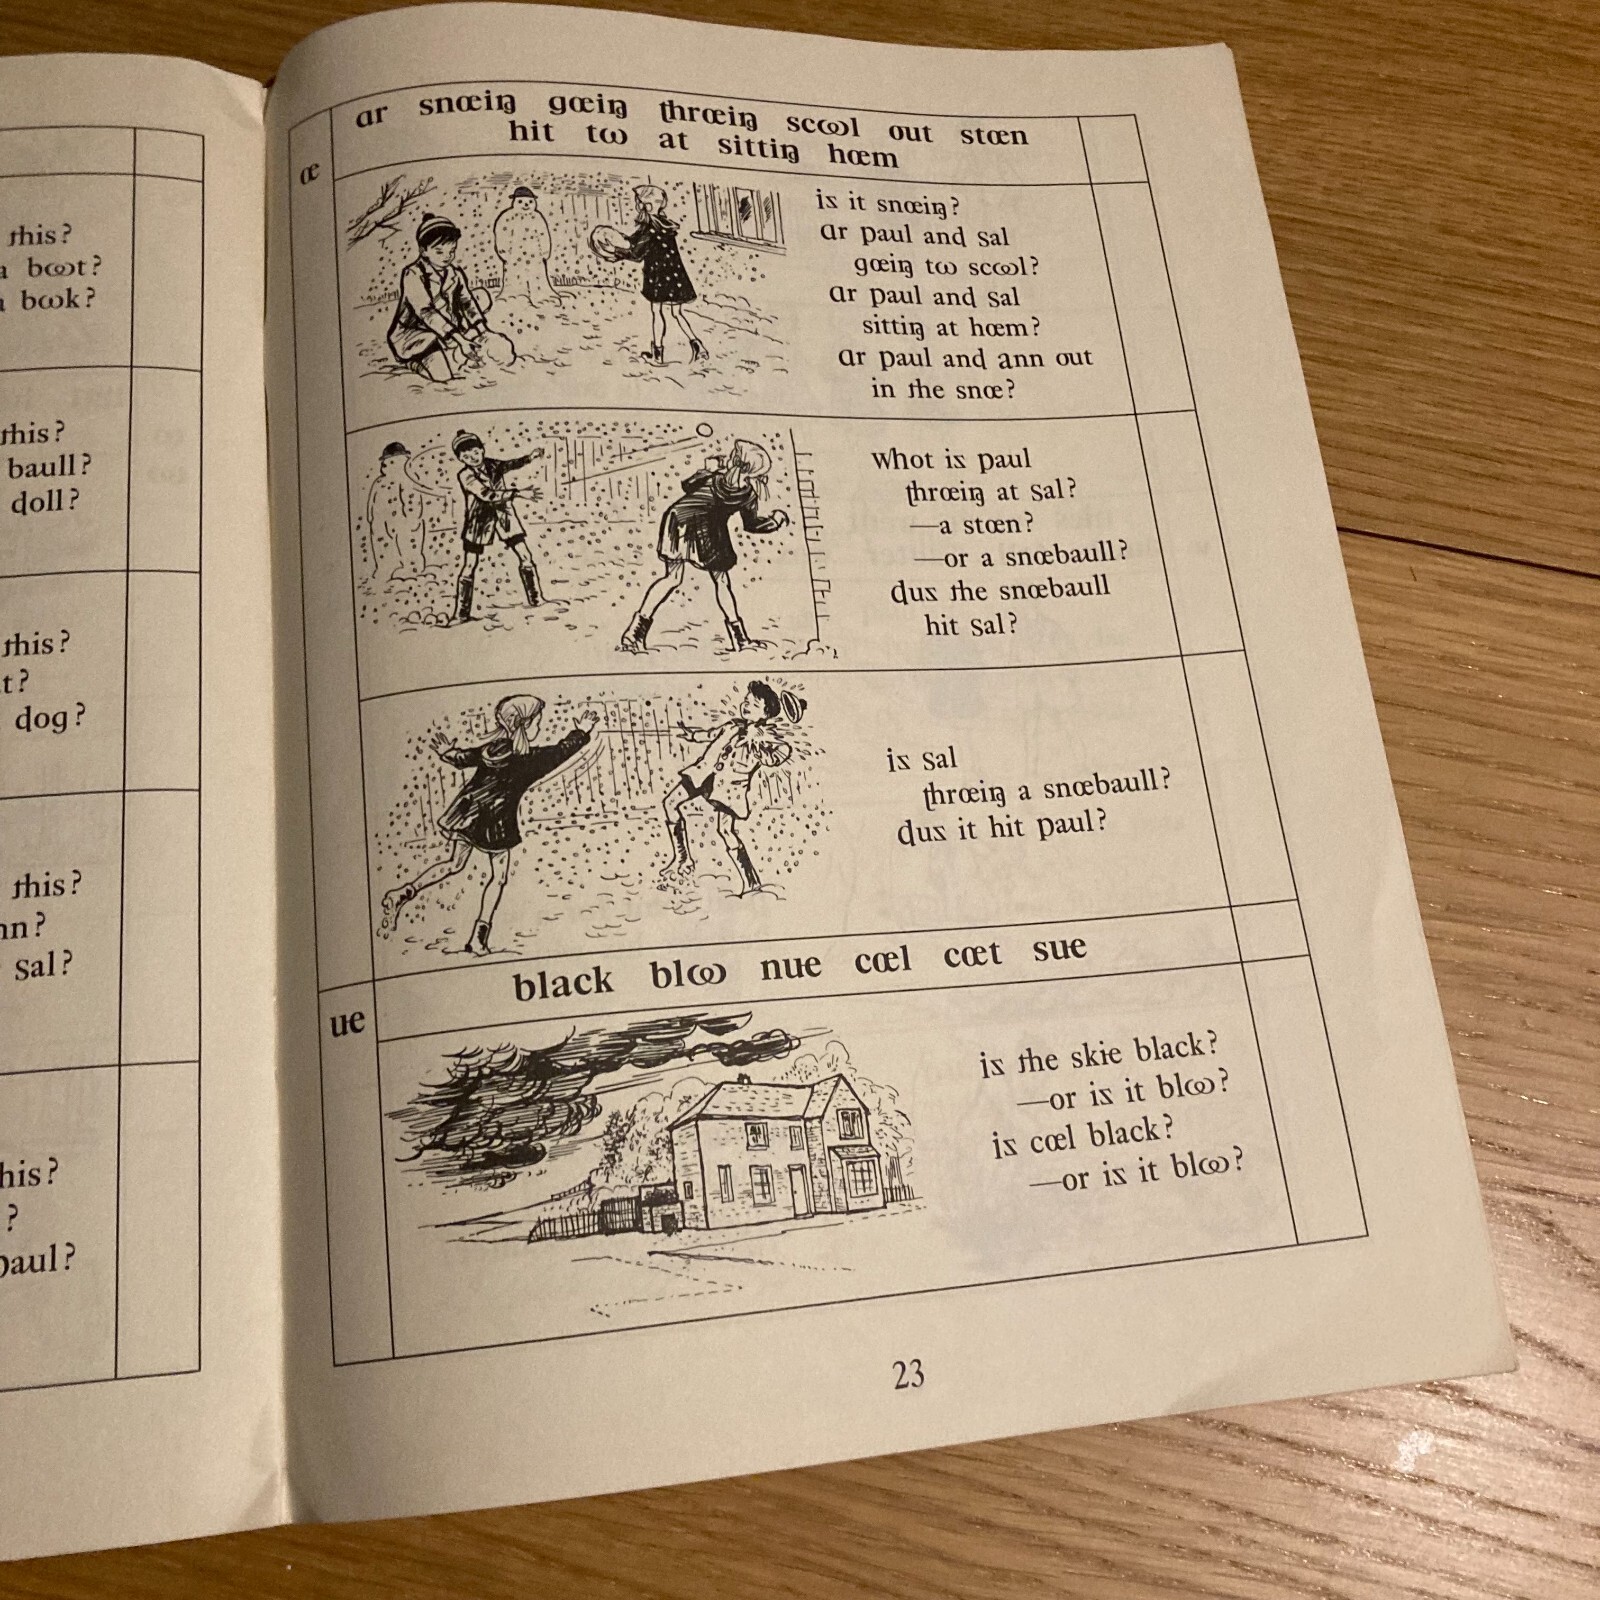 this?
a bꞷt?
a bꞷk?
this?
baull?
doll?
this?
t?
dog?
this?
nn?
sal?
his?
?
paul?
œ
ɑr snœiŋ gœiŋ thrœiŋ scꞷl out stœn
hit tꞷ at sittiŋ hœm
iƨ it snœiŋ?
ɑr paul and sal
gœiŋ tꞷ scꞷl?
ɑr paul and sal
sittiŋ at hœm?
ɑr paul and ann out
in the snœ?
whot iƨ paul
thrœiŋ at sal?
—a stœn?
—or a snœbaull?
duƨ the snœbaull
hit sal?
iƨ sal
thrœiŋ a snœbaull?
duƨ it hit paul?
ue
black blꞷ nue cœl cœt sue
iƨ the skie black?
—or iƨ it blꞷ?
iƨ cœl black?
—or iƨ it blꞷ?
23